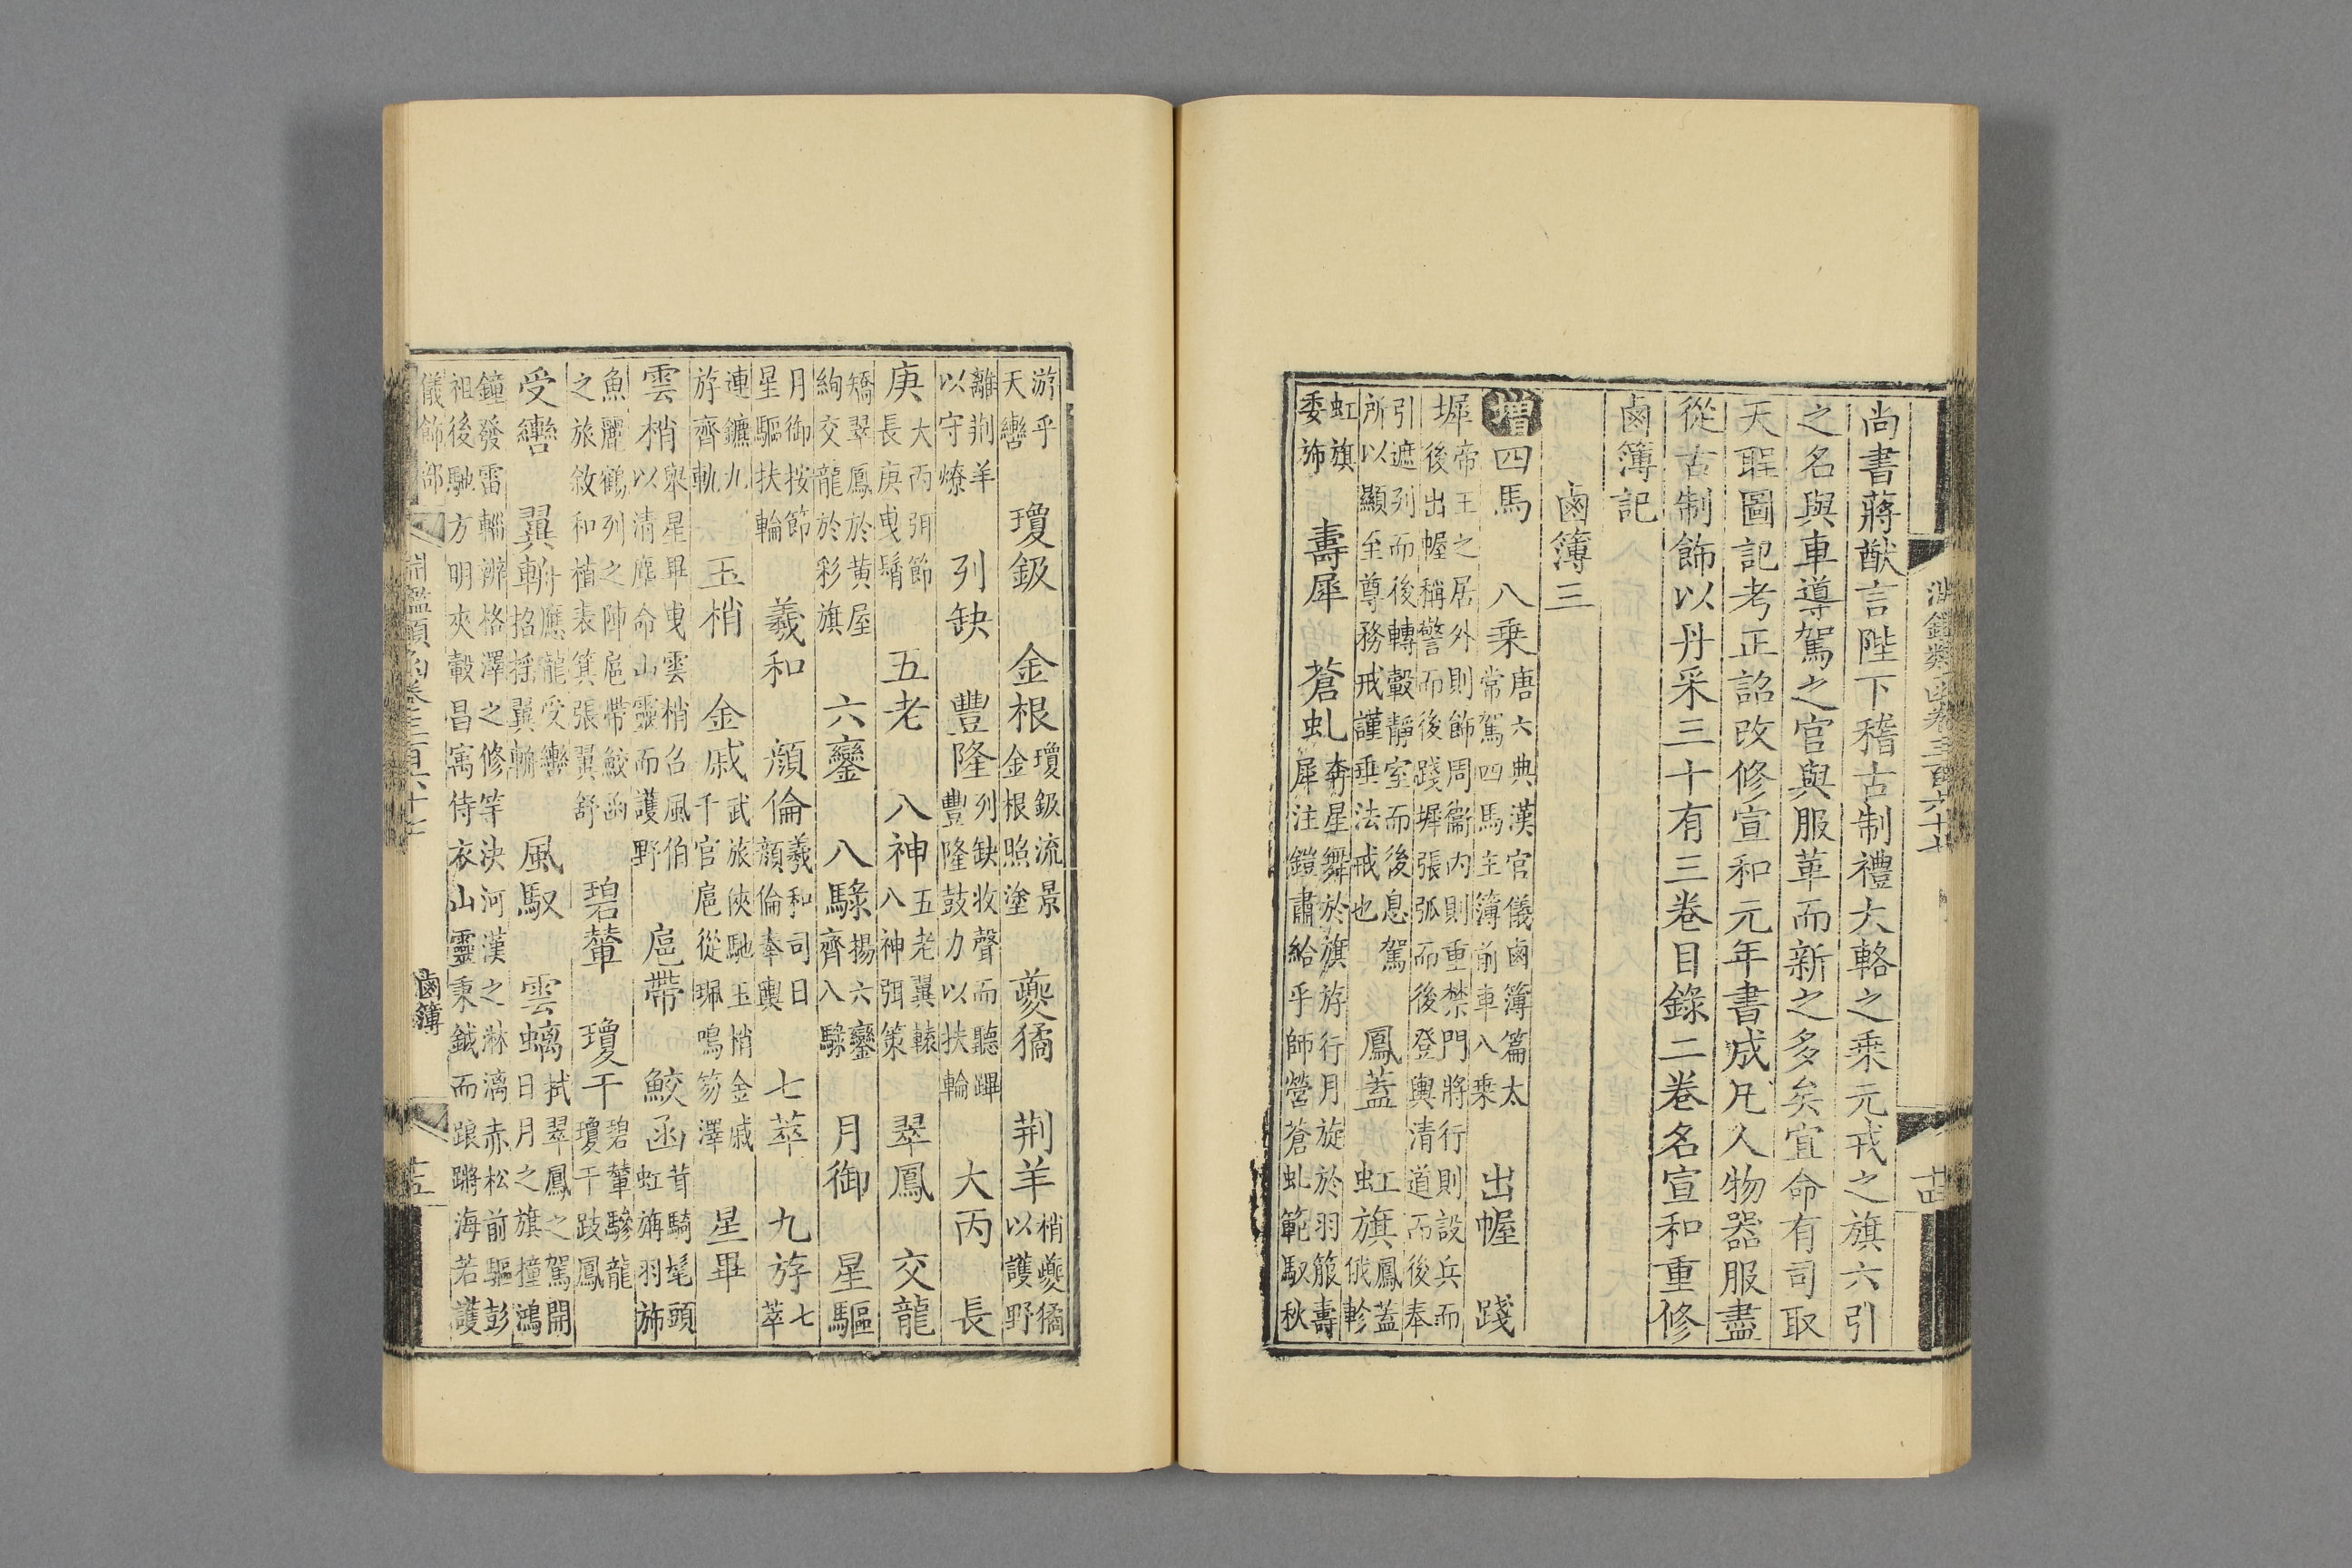 尚書蔣猷言陛下稽古制禮大輅之乗元戎之旗六引
之名與車導駕之官與服革而新之多矣宜命有司取
天聖圖記考正詔改修宣和元年書成凡人物器服盡
從古制飾以丹采三十有三卷目錄二卷名宣和重修
鹵簿記
鹵簿三
增四馬 八乗唐六典漢官儀鹵簿篇太常駕四馬主簿前車八乗 出幄 踐
墀帝王之居外則飾周衞内則重禁門將行則設兵而後出幄稱警而後踐墀張弧而後登輿清道而後奉
引遮列而後轉轂靜室而後息駕所以顯至尊務戒謹垂法戒也 鳳蓋 虹旗鳳蓋俄軫
虹旗委旆 壽犀 蒼虬奔星舞於旗斿行月旋於羽箙壽犀注鎧肅給乎師營蒼虬範馭秋
游乎天轡 瓊鈒 金根瓊鈒流景金根照塗 夔獝 荆羊梢夔獝以護野
離荆羊以守燎 列缺 豐隆列缺收聲而聽蹕豐隆鼓力以扶輪 大丙 長
庚大丙弭節長庚曳髾 五老 八神五老翼轅八神弭策 翠鳳 交龍
矯翠鳳於黃屋絢交龍於彩旗 六鑾 八騄揚六鑾齊八騄 月御 星驅
月御按節星驅扶輪 羲和 顔倫羲和司日顔倫奉輿 七萃 九斿七萃
連鑣九斿齊軌 玉梢 金戚武旅俠馳玉梢金戚千官扈從珮鳴笏澤 星畢
雲梢舉星畢曳雲梢召風伯以清塵命山靈而護野 扈帶 鮫函茸騎髦頭虹旃羽旆
魚麗鶴列之陣扈帶鮫函之旅敘和植表箕張翼舒 碧輦 瓊干碧輦驂龍瓊干跂鳳
受轡 翼輈應龍受轡招搖翼輈 風馭 雲螭拭翠鳳之駕開日月之旗撞鴻
鐘發雷輜辨格澤之修竿決河漢之淋漓赤松前驅彭祖後馳方明夾轂昌寓侍衣山靈秉鉞而踉蹡海若護
儀飾部
淵鑑類函卷三百六十七
鹵簿
十五
淵鑑類函卷三百六十七
十四